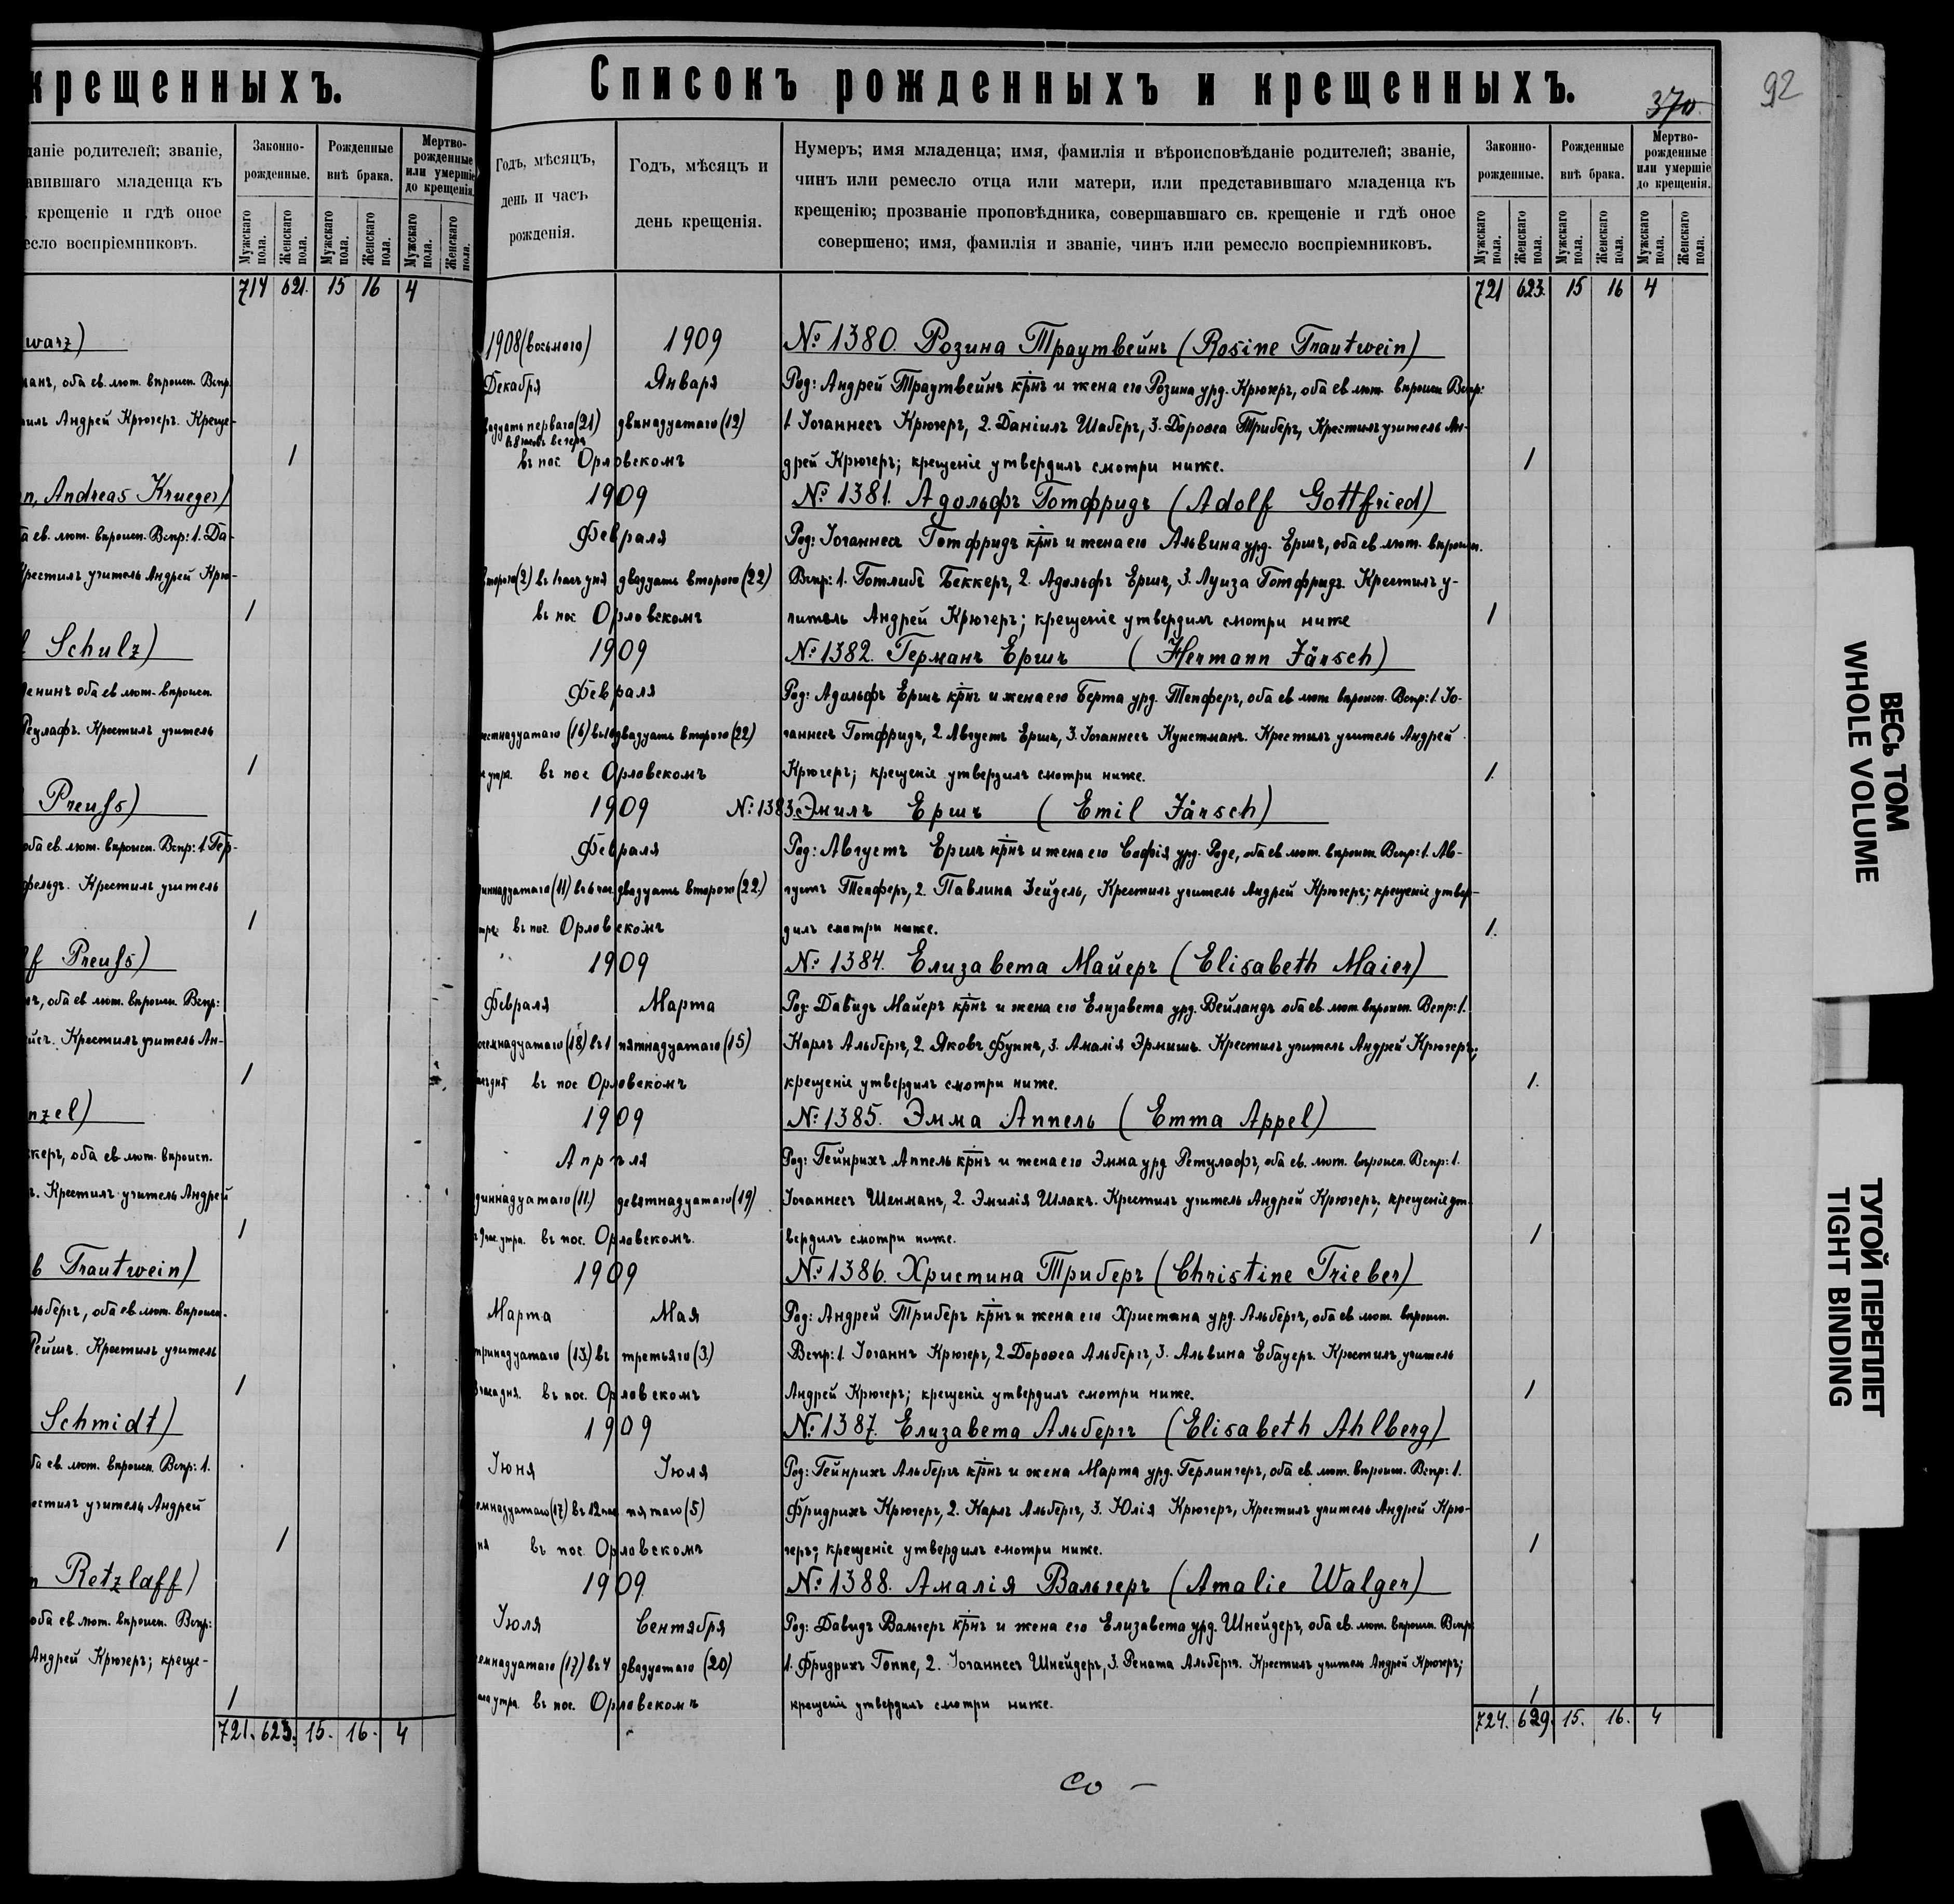 крещенныхъ.
даніе родителей; званіе,
авившаго младенца къ
крещеніе и гдѣ оное
есло воспріемниковъ.
Законно-
рожденные.
Рожденные
внѣ брака.
Мертво-
рожденные
или умершіе
до крещенія.
Мужскаго пола.
Женскаго пола.
Мужскаго пола.
Женскаго пола.
Мужскаго пола.
Женскаго пола.
714 621. 15 16 4
warz)
манъ, оба ев. лют. вѣроисп. Вспр.
тилъ Андрей Крюгеръ. Креще-
1
n, Andreas Krueger)
а ев. лют. вѣроисп. Вспр: 1. Да-
Крестилъ учитель Андрей Крю-
1
Schulz)
ленинъ оба ев лют. вѣроисп.
Рецлафъ. Крестилъ учитель
1
Preuss)
оба ев. лют. вѣроисп. Вспр: 1. Гер-
фельдъ. Крестилъ учитель
1
f Preuss)
оба ев. лют. вѣроисп. Вспр:
йсъ. Крестилъ учитель Ан-
1
nzel)
керъ, оба ев. лют. вѣроисп.
Крестилъ учитель Андрей
1
b Trautwein)
льбергъ, оба ев. лют. вѣроисп.
Рейшъ. Крестилъ учитель
1
Schmidt)
ба ев. лют. вѣроисп. Вспр: 1.
естилъ учитель Андрей
1
n Retzlaff)
оба ев лют. вѣроисп. Вспр:
Андрей Крюгеръ; креще-
1
721. 623. 15. 16. 4
Списокъ рожденныхъ и крещенныхъ.
370.
92
Годъ, мѣсяцъ,
день и часъ
рожденія.
Годъ, мѣсяцъ и
день крещенія.
Нумеръ; имя младенца; имя, фамилія и вѣроисповѣданіе родителей; званіе,
чинъ или ремесло отца или матери, или представившаго младенца къ
крещенію; прозваніе проповѣдника, совершавшаго св. крещеніе и гдѣ оное
совершено; имя, фамилія и званіе, чинъ или ремесло воспріемниковъ.
Законно-
рожденные.
Рожденные
внѣ брака.
Мертво-
рожденные
или умершіе
до крещенія.
Мужскаго пола.
Женскаго пола.
Мужскаго пола.
Женскаго пола.
Мужскаго пола.
Женскаго пола.
721 623. 15 16 4
1908 (восьмого) 1909 №: 1380. Розина Траутвейнъ (Rosine Trautwein)
Декабря Января Род: Андрей Траутвейнъ крнъ и жена его Розина урд. Крюгеръ, оба ев лют. вѣроисп. Вспр:
вадцать перваго (21) двѣнадцатаго (12) 1. Іоганнесъ Крюгеръ, 2. Даніилъ Шабергъ, 3. Доровеа Триберъ, Крестилъ учитель Ан-
въ 8 часовъ вечера
въ пос. Орловскомъ дрей Крюгеръ; крещеніе утвердилъ смотри ниже. 1
1909 №: 1381. Адольфъ Готфридъ (Adolf Gottfried)
Февраля Род: Іоганнесъ Готфридъ крнъ и жена его Альвина урд. Ершъ, оба ев лют. вѣроисп.
второго (2) въ 1 часъ дня двадцать второго (22) Вспр: 1. Готлибъ Беккеръ, 2. Адольфъ Ершъ, 3. Луиза Готфридъ. Крестилъ у-
въ пос Орловскомъ читель Андрей Крюгеръ; крещеніе утвердилъ смотри ниже 1
1909 №: 1382. Германъ Ершъ (Hermann Järsch)
Февраля Род: Адольфъ Ершъ крнъ и жена его Берта урд. Тепферъ, оба ев лют. вѣроисп. Вспр: 1. Іо-
естнадцатаго (16) въ 10 двадцать второго (22) ганнесъ Готфридъ, 2. Августъ Ершъ, 3. Іоганнесъ Кунстманъ. Крестилъ учитель Андрей
утра. въ пос Орловскомъ Крюгеръ; крещеніе утвердилъ смотри ниже. 1.
1909 №: 1383. Эмилъ Ершъ (Emil Järsch)
Февраля Род: Августъ Ершъ крнъ и жена его Софія урд. Роде, оба ев лют. вѣроисп. Вспр: 1. Ав-
диннадцатаго (11) въ 6 час. двадцать второго (22.) густъ Тепферъ, 2. Павлина Зейдель, Крестилъ учитель Андрей Крюгеръ; крещеніе утвер-
въ пос. Орловскомъ дилъ смотри ниже. 1.
1909 №: 1384. Елизавета Майеръ (Elisabeth Maier)
Февраля Марта Род: Давидъ Майеръ крнъ и жена его Елизавета урд. Вейландъ оба ев. лют вѣроисп. Вспр: 1.
осемнадцатаго (18) въ 1 пятнадцатаго (15) Карлъ Альбергъ, 2. Яковъ Функъ, 3. Амалія Эрмишъ. Крестилъ учитель Андрей Крюгеръ;
дня въ пос Орловскомъ крещеніе утвердилъ смотри ниже. 1.
1909 №: 1385. Эмма Аппель (Emma Appel)
Апрѣля Род: Гейнрихъ Аппель крнъ и жена его Эмма урд Ретцлафъ, оба ев. лют. вѣроисп. Вспр: 1.
диннадцатаго (11) девятнадцатаго (19) Іоганнесъ Шенманъ, 2. Эмилія Шлакъ. Крестилъ учитель Андрей Крюгеръ; крещеніе ут-
9 час. утра. въ пос. Орловскомъ. вердилъ смотри ниже. 1
1909 №: 1386. Христина Триберъ (Christine Trieber)
Марта Мая Род: Андрей Триберъ крнъ и жена его Христина урд. Альбергъ, оба ев. лют. вѣроисп.
тринадцатаго (13) въ третьяго (3.) Вспр: 1. Іоганнъ Крюгеръ, 2. Доровеа Альбергъ, 3. Альвина Ебауеръ. Крестилъ учитель
часа дня. въ пос. Орловскомъ Андрей Крюгеръ; крещеніе утвердилъ смотри ниже. 1
1909 №: 1387. Елизавета Альбергъ (Elisabeth Ahlberg)
Іюня Іюля Род: Гейнрихъ Альбергъ крнъ и жена Марта урд. Герлингеръ, оба ев. лют. вѣроисп. Вспр: 1.
емнадцатаго (17) въ 12 час пятаго (5) Фридрихъ Крюгеръ, 2. Карлъ Альбергъ, 3. Юлія Крюгеръ, Крестилъ учитель Андрей Крю-
въ пос. Орловскомъ геръ; крещеніе утвердилъ смотри ниже. 1
1909 №: 1388. Амалія Вальгеръ (Amalie Walger)
Іюля Сентября Род: Давидъ Вальгеръ крнъ и жена его Елизавета урд. Шнейдеръ, оба ев. лют. вѣроисп. Вспр:
емнадцатаго (17) въ 4 двадцатаго (20) 1. Фридрихъ Гоппе, 2. Іоганнесъ Шнейдеръ, 3. Рената Альбергъ. Крестилъ учитель Андрей Крюгеръ;
часа утра. въ пос. Орловскомъ крещеніе утвердилъ смотри ниже. 1
724. 629. 15. 16. 4
ВЕСЬ ТОМ
WHOLE VOLUME
ТУГОЙ ПЕРЕПЛЕТ
TIGHT BINDING